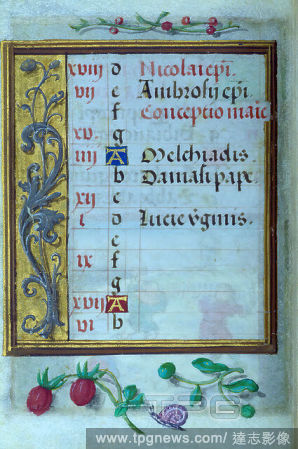 xviij d Nicolai epi.
vij e Ambrosij epi.
f Conceptio marie
xv g
iiij A Melchiadis.
b Damasi pape.
xij c
i d Lucie vginis.
e
ix f
g
xvij A
vi b
TPG
www.tpgnews.com / 達志影像